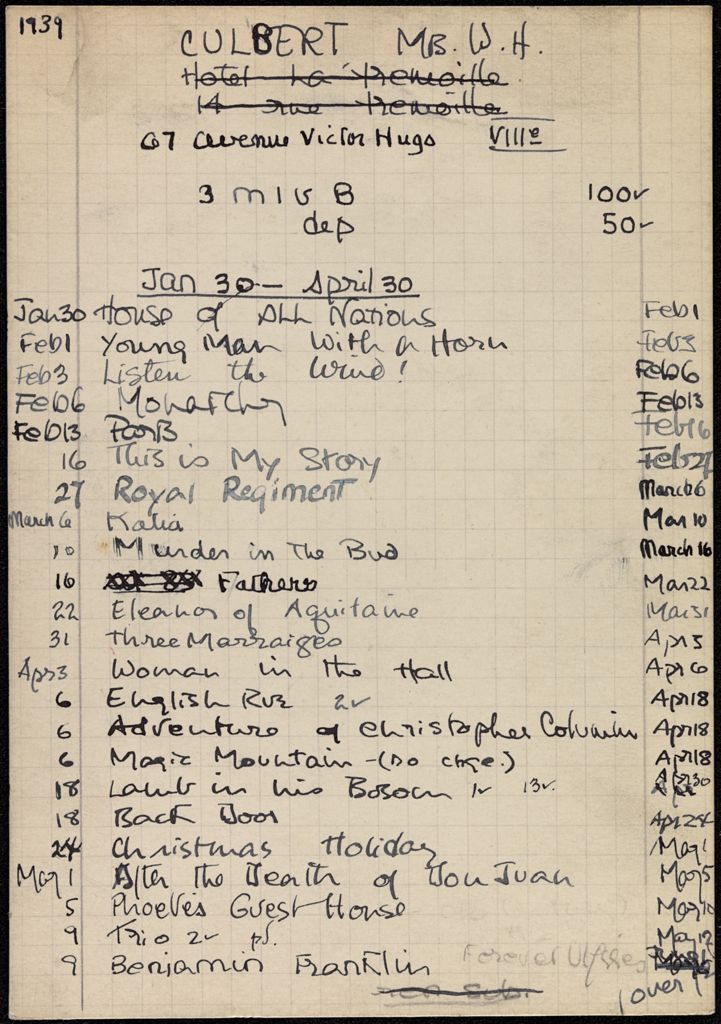 1939
CULBERT Mr. W. H.
Hotel La Tremoille
14 rue Tremoille
67 avenue Victor Hugo VIIIe
3 m 1 v B 100 ✓
dep 50 -
Jan 30 - April 30
Jan 30 House of All Nations Feb 1
Feb 1 Young Man With a Horn Feb 3
Feb 3 Listen the Wind! Feb 6
Feb 6 Monarchy Feb 13
Feb 13 Feb 16
16 This is My Story Feb 27
27 Royal Regiment March 6
March 6 Katia Mar 10
10 Murder in The Bud March 16
16 Fathers Mar 22
22 Eleanor of Aquitaine Mar 31
31 Three Marraiges Apr 3
Apr 3 Woman in the Hall Apr 6
6 English Rvz 2 ✓ Apr 18
6 Adventure of Christopher Columbus Apr 18
6 Magic Mountain - (no chge.) Apr 18
18 Lamb in his Bosom 1 ✓ 13 ✓. Apr 30
18 Back Door Apr 24
24 Christmas Holiday May 1
May 1 After the Death of Don Juan May 5
5 Phoebe's Guest House May 10
9 Trio 2 ✓ pd. May 12
9 Benjamin Franklin Forever Ulysses
over